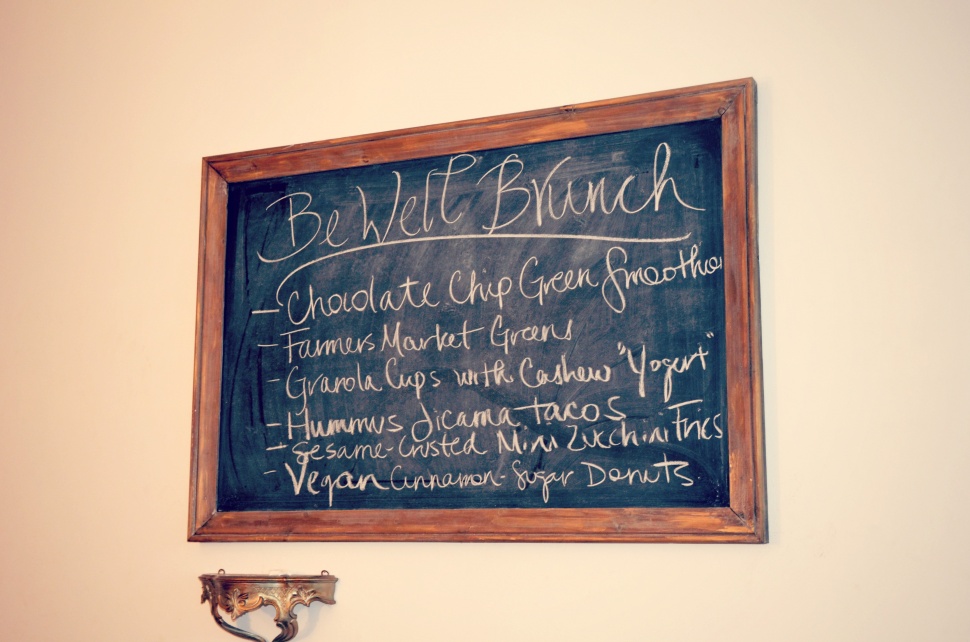 Be Well Brunch
- Chocolate Chip Green Smoothie
- Farmers Market Greens
- Granola Cups with Cashew "Yogurt"
- Hummus Jicama tacos
- Sesame-Crusted Mini Zucchini Fries
- Vegan Cinnamon-Sugar Donuts